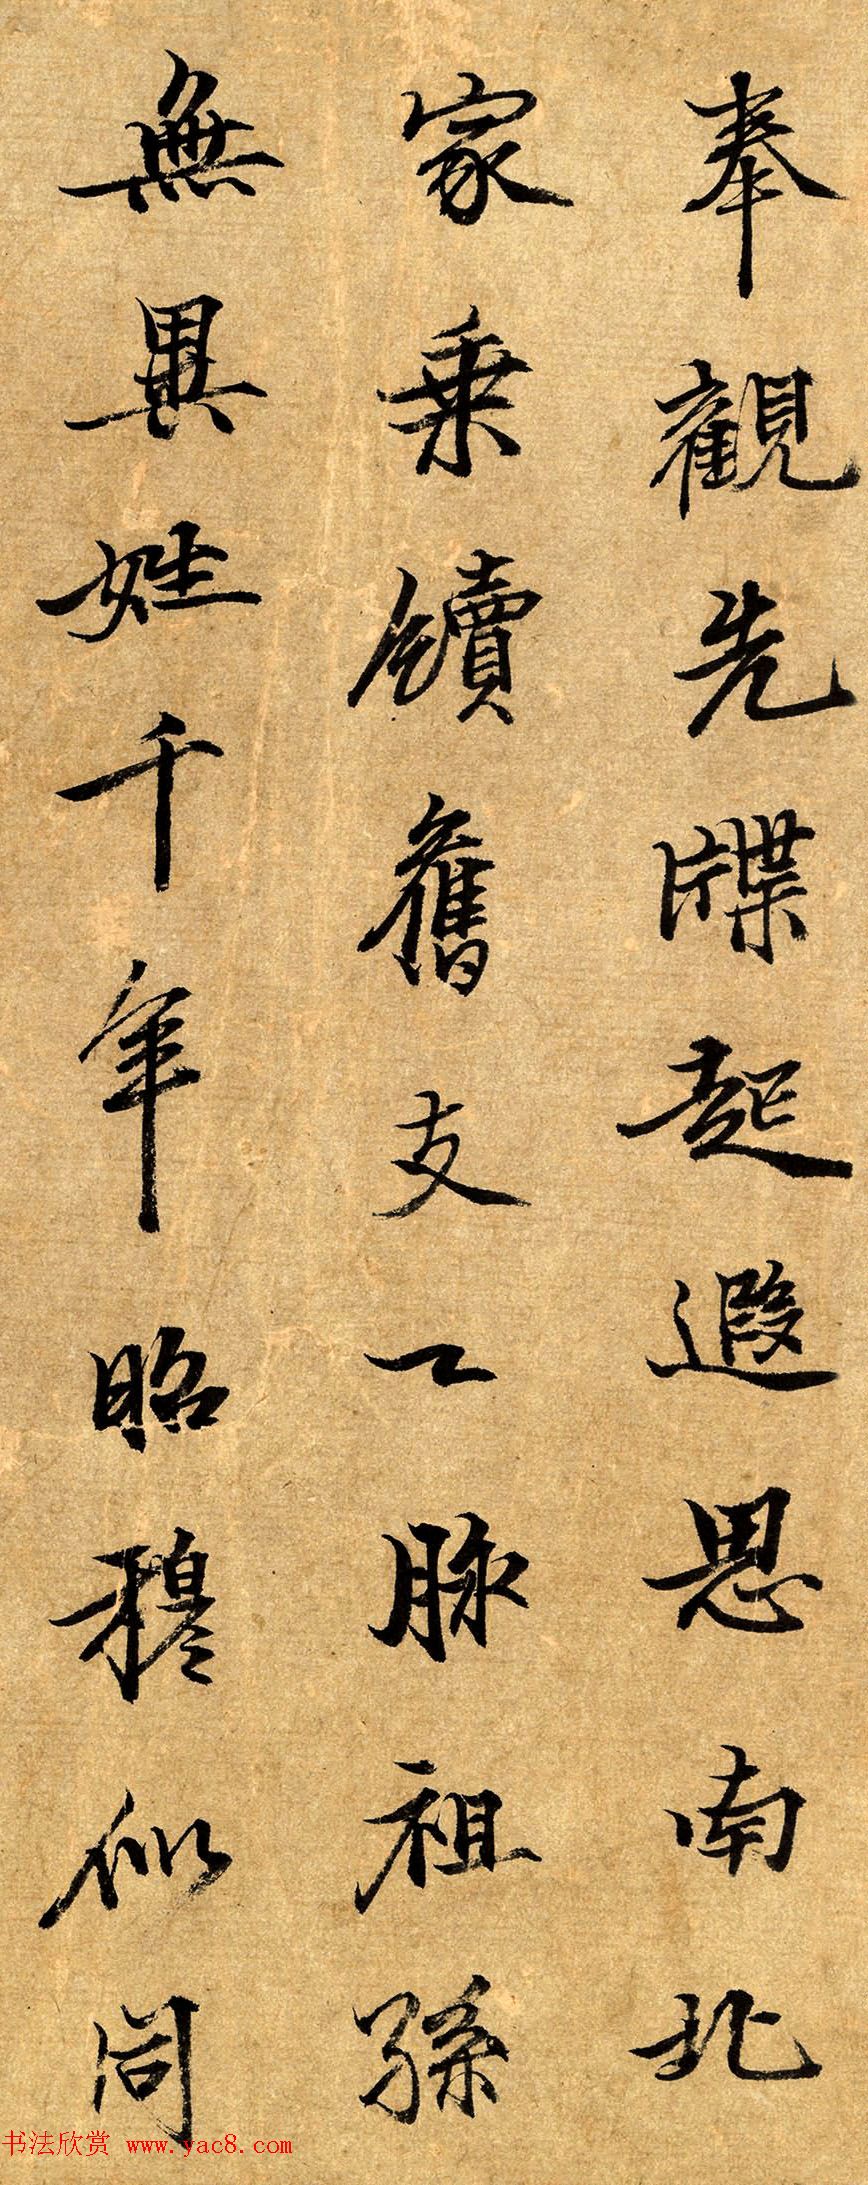 奉觀先牒起遐思南北
家乗續舊支一脉祖孫
無異姓千年昭穆似同
书法欣赏 www.yac8.com